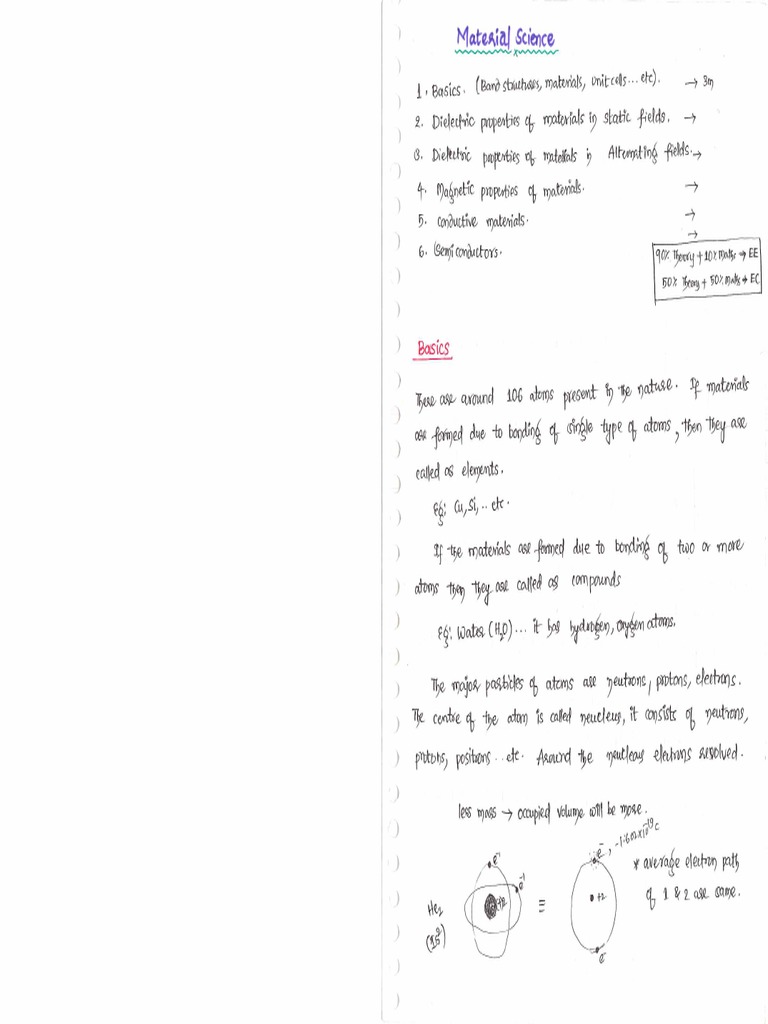 Material Science
1. Basics. (Band structures, materials, unit cells... etc). → 3m
2. Dielectric properties of materials in static fields. →
3. Dielectric properties of materials in Alternating fields. →
4. Magnetic properties of materials. →
5. conductive materials. →
→
6. Semiconductors.
90% Theory + 10% Maths → EE
50% Theory + 50% maths → EC
Basics
There are around 106 atoms present in the nature. If materials
are formed due to bonding of single type of atoms, then they are
called as elements.
Eg: Cu, Si, .. etc.
If the materials are formed due to bonding of two or more
atoms then they are called as compounds
Eg: Water (H2O) ... it has hydrogen, oxygen atoms.
The major particles of atoms are neutrons, protons, electrons.
The centre of the atom is called neucleus, it consists of neutrons,
protons, positions .. etc. Around the neucleus electrons resolved.
less mass → occupied volume will be more.
e-1
e-, -1.602x10-19 c
* average electron path
e-1
of 1 & 2 are same.
He2
+2
≡
+2
(1s2)
e-